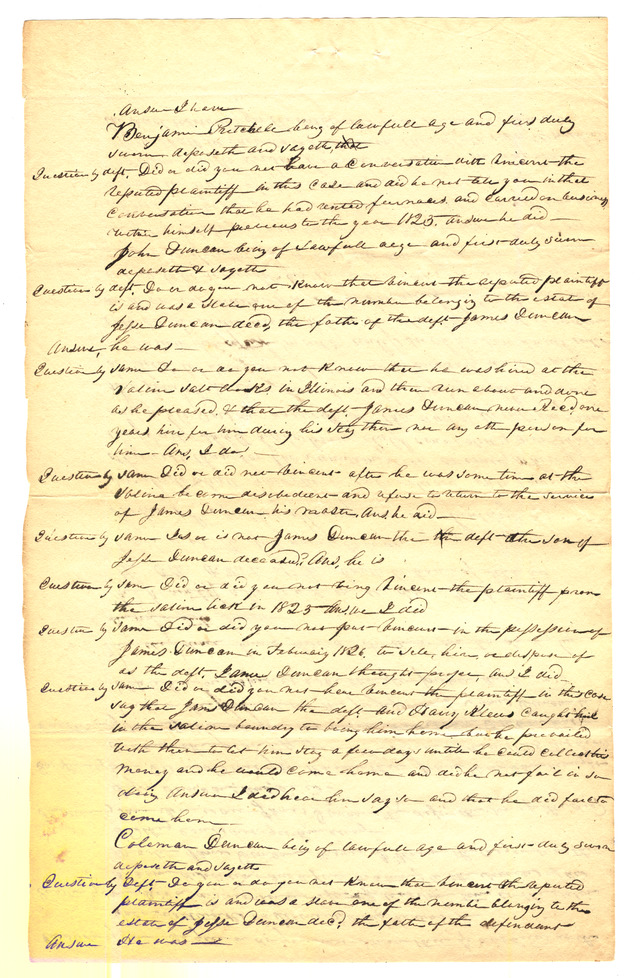 Answer I have
Benjamin Ritchell being of lawfull age and first duly
sworn deposeth and sayeth, that
Question by deft. Did or did you not have a conversation with Vincent the
reputed plaintiff in this case and did he not tell you in that
conversation that he had rented furnaces, and carried on business
within himself previous to the year 1825. answer he did —
John Duncan being of lawfull age and first duly sworn
deposeth & sayeth
Question by deft. Do or do you not know that Vincent the reputed plaintiff
is and was a slave one of the number belonging to the estate of
Jesse Duncan decd, the father of the deft. James Duncan
Answer, he was —
Question by same Do or do you not know that he was hired at the
Saline salt works in Illinois and there run about and done
as he pleased, & that the deft. James Duncan never recd one
years hire for him during his stay there nor any oth person for
him — Ans, I do. —
Question by same Did or did not Vincent after he was some time at the
Saline become disobedient and refuse to return to the services
of James Duncan his master. Ans he did —
Question by same Is or is not James Duncan the deft the son of
Jesse Duncan deceasd? Ans, he is
Question by same Did or did you not bring Vincent the plaintiff from
the Saline lick in 1825 Answe I did
Question by same Did or did you not put Vincent in the possession of
James Duncan in February 1826 to sele, hire, or dispose of
as the deft. James Duncan thought proper, ans I did
Question by same Did or did you not hear Vincent the plaintiff in this case
say that James Duncan the deft. and caught him
in the Saline boundry to bring him home but he prevailed
with them to let him stay a few days until he could collect his
money and he would come home and did he not fail in so
doing Answer I did hear him say so and that he did fail to
come home
Coleman Duncan being of lawfull age and first duly sworn
deposeth and sayeth
Question by Deft. Do you or do you not know that Vincent the reputed
plaintiff is and was a slave one of the number blonging to the
estate of Jesse Duncan decd. the father of the defendant
Answer He was —